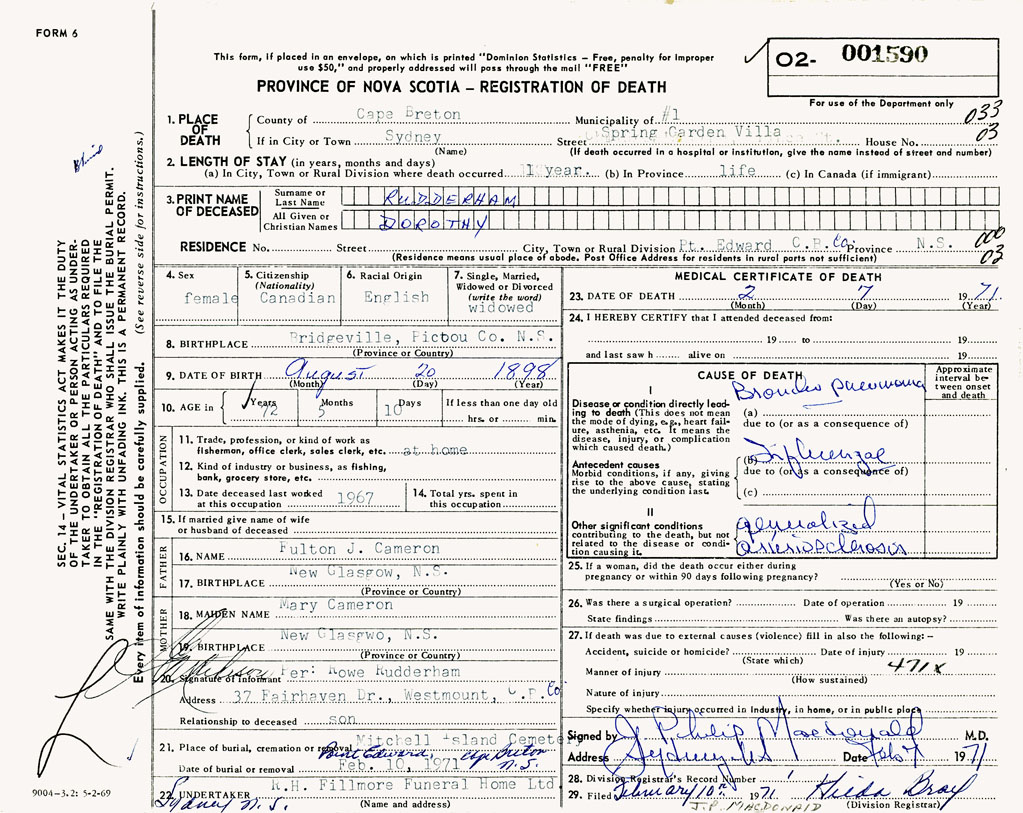 FORM 6
This form, if placed in an envelope, on which is printed "Dominion Statistics – Free, penalty for improper
use $50," and properly addressed will pass through the mail "FREE"
O2- 001590
For use of the Department only
PROVINCE OF NOVA SCOTIA – REGISTRATION OF DEATH
SEC. 14 – VITAL STATISTICS ACT MAKES IT THE DUTY
OF THE UNDERTAKER OR PERSON ACTING AS UNDER-
TAKER TO OBTAIN ALL THE PARTICULARS REQUIRED
IN THE "REGISTRATION OF DEATH" AND TO FILE THE
SAME WITH THE DIVISION REGISTRAR WHO SHALL ISSUE THE BURIAL PERMIT.
WRITE PLAINLY WITH UNFADING INK. THIS IS A PERMANENT RECORD.
Every item of information should be carefully supplied. (See reverse side for instructions.)
1. PLACE OF DEATH
County of Cape Breton Municipality of #1 033
If in City or Town Sydney Street Spring Garden Villa House No. 03
(Name) (If death occurred in a hospital or institution, give the name instead of street and number)
2. LENGTH OF STAY (in years, months and days)
(a) In City, Town or Rural Division where death occurred 1 year. (b) In Province life (c) In Canada (if immigrant)
3. PRINT NAME OF DECEASED
Surname or Last Name RUDDERHAM
All Given or Christian Names DOROTHY
RESIDENCE No. Street City, Town or Rural Division Pt. Edward C.B. Co Province N.S. 000
(Residence means usual place of abode. Post Office Address for residents in rural parts not sufficient) 03
4. Sex female
5. Citizenship (Nationality) Canadian
6. Racial Origin English
7. Single, Married, Widowed or Divorced (write the word) widowed
8. BIRTHPLACE Bridgeville, Pictou Co. N.S.
(Province or Country)
9. DATE OF BIRTH August 20 1898
(Month) (Day) (Year)
10. AGE in Years 72 Months 5 Days 10 If less than one day old
hrs. or min.
OCCUPATION
11. Trade, profession, or kind of work as
fisherman, office clerk, sales clerk, etc. at home
12. Kind of industry or business, as fishing,
bank, grocery store, etc.
13. Date deceased last worked at this occupation 1967
14. Total yrs. spent in this occupation
15. If married give name of wife
or husband of deceased
FATHER
16. NAME Fulton J. Cameron
17. BIRTHPLACE New Glasgow, N.S.
(Province or Country)
MOTHER
18. MAIDEN NAME Mary Cameron
19. BIRTHPLACE New Glasgwo, N.S.
(Province or Country)
20. Signature of Informant Per: Rowe Rudderham
Address 37 Fairhaven Dr., Westmount, C.B. Co
Relationship to deceased son
21. Place of burial, cremation or removal Mitchell Island Cemetery
Point Edward, Cape Breton N.S.
Date of burial or removal Feb. 10, 1971
22. UNDERTAKER R.H. Fillmore Funeral Home Ltd
Sydney N.S. (Name and address)
9004-3.2: 5-2-69
MEDICAL CERTIFICATE OF DEATH
23. DATE OF DEATH 2 7 1971.
(Month) (Day) (Year)
24. I HEREBY CERTIFY that I attended deceased from:
19 to 19
and last saw h alive on 19
CAUSE OF DEATH
Approximate interval between onset and death
I
Disease or condition directly leading to death (This does not
mean the mode of dying, e.g., heart failure, asthenia, etc. It means the
disease, injury, or complication
which caused death.)
Broncho pneumonia
(a)
due to (or as a consequence of)
Antecedent causes
Morbid conditions, if any, giving
rise to the above cause, stating
the underlying condition last.
(b) Influenzae
due to (or as a consequence of)
(c)
II
Other significant conditions
contributing to the death, but not
related to the disease or condition causing it.
generalized
arteriosclerosis
25. If a woman, did the death occur either during
pregnancy or within 90 days following pregnancy?
(Yes or No)
26. Was there a surgical operation? Date of operation 19
State findings Was there an autopsy?
27. If death was due to external causes (violence) fill in also the following: –
Accident, suicide or homicide? Date of injury 19
(State which)
Manner of injury 471x
(How sustained)
Nature of injury
Specify whether injury occurred in industry, in home, or in public place
Signed by J. Philip Macdonald M.D.
Address Sydney NS Date Feb 7 1971
28. Division Registrar's Record Number 1
29. Filed February 10th 1971 Hilda Bray
J.P. MACDONALD (Division Registrar)